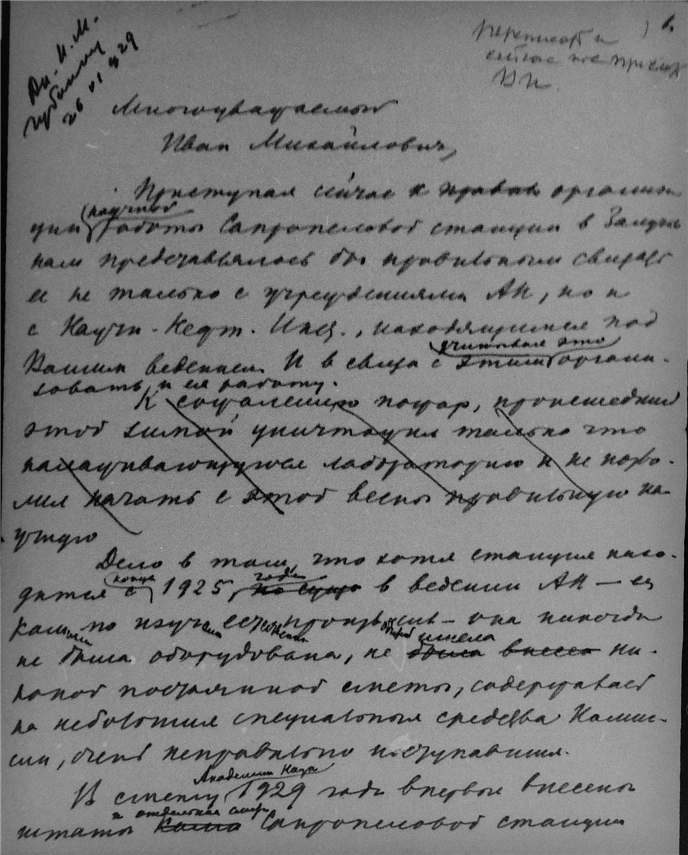 Ак. И. М.
Губкину
26 VI 929
1.
Переписать и
сейчас же
Многоуважаемый
Иван Михайлович,
Приступая сейчас к организа-
ции научной работы Сапропелевой станции в Залучье
нам представлялось бы правильным связать
ее не только с учреждениями АН, но и
с Научн. Нефт. Инст., находящимся под
Вашим ведением. И в связи с этим учитывая это органи-
зовать и ея работу.
К сожалению пожар, происшедший
этой зимой, уничтожил только что
налаживающуюся лабораторию и не позво-
лил начать с этой весны правильную на-
учную
Дело в том, что хотя станция нахо-
дится с конца 1925 года в ведении АН – ея
Комиссии по изучению естеств. произв. сил – она никогда
не была оборудована, не имела была ни-
какой постоянной сметы, содержавшей
на небольшия специальныя средства Комис-
сии, очень неправильно поступавшия.
В смету Академии Наук 1929 года впервые внесены
штаты и отдельная смета Сапропелевой станции